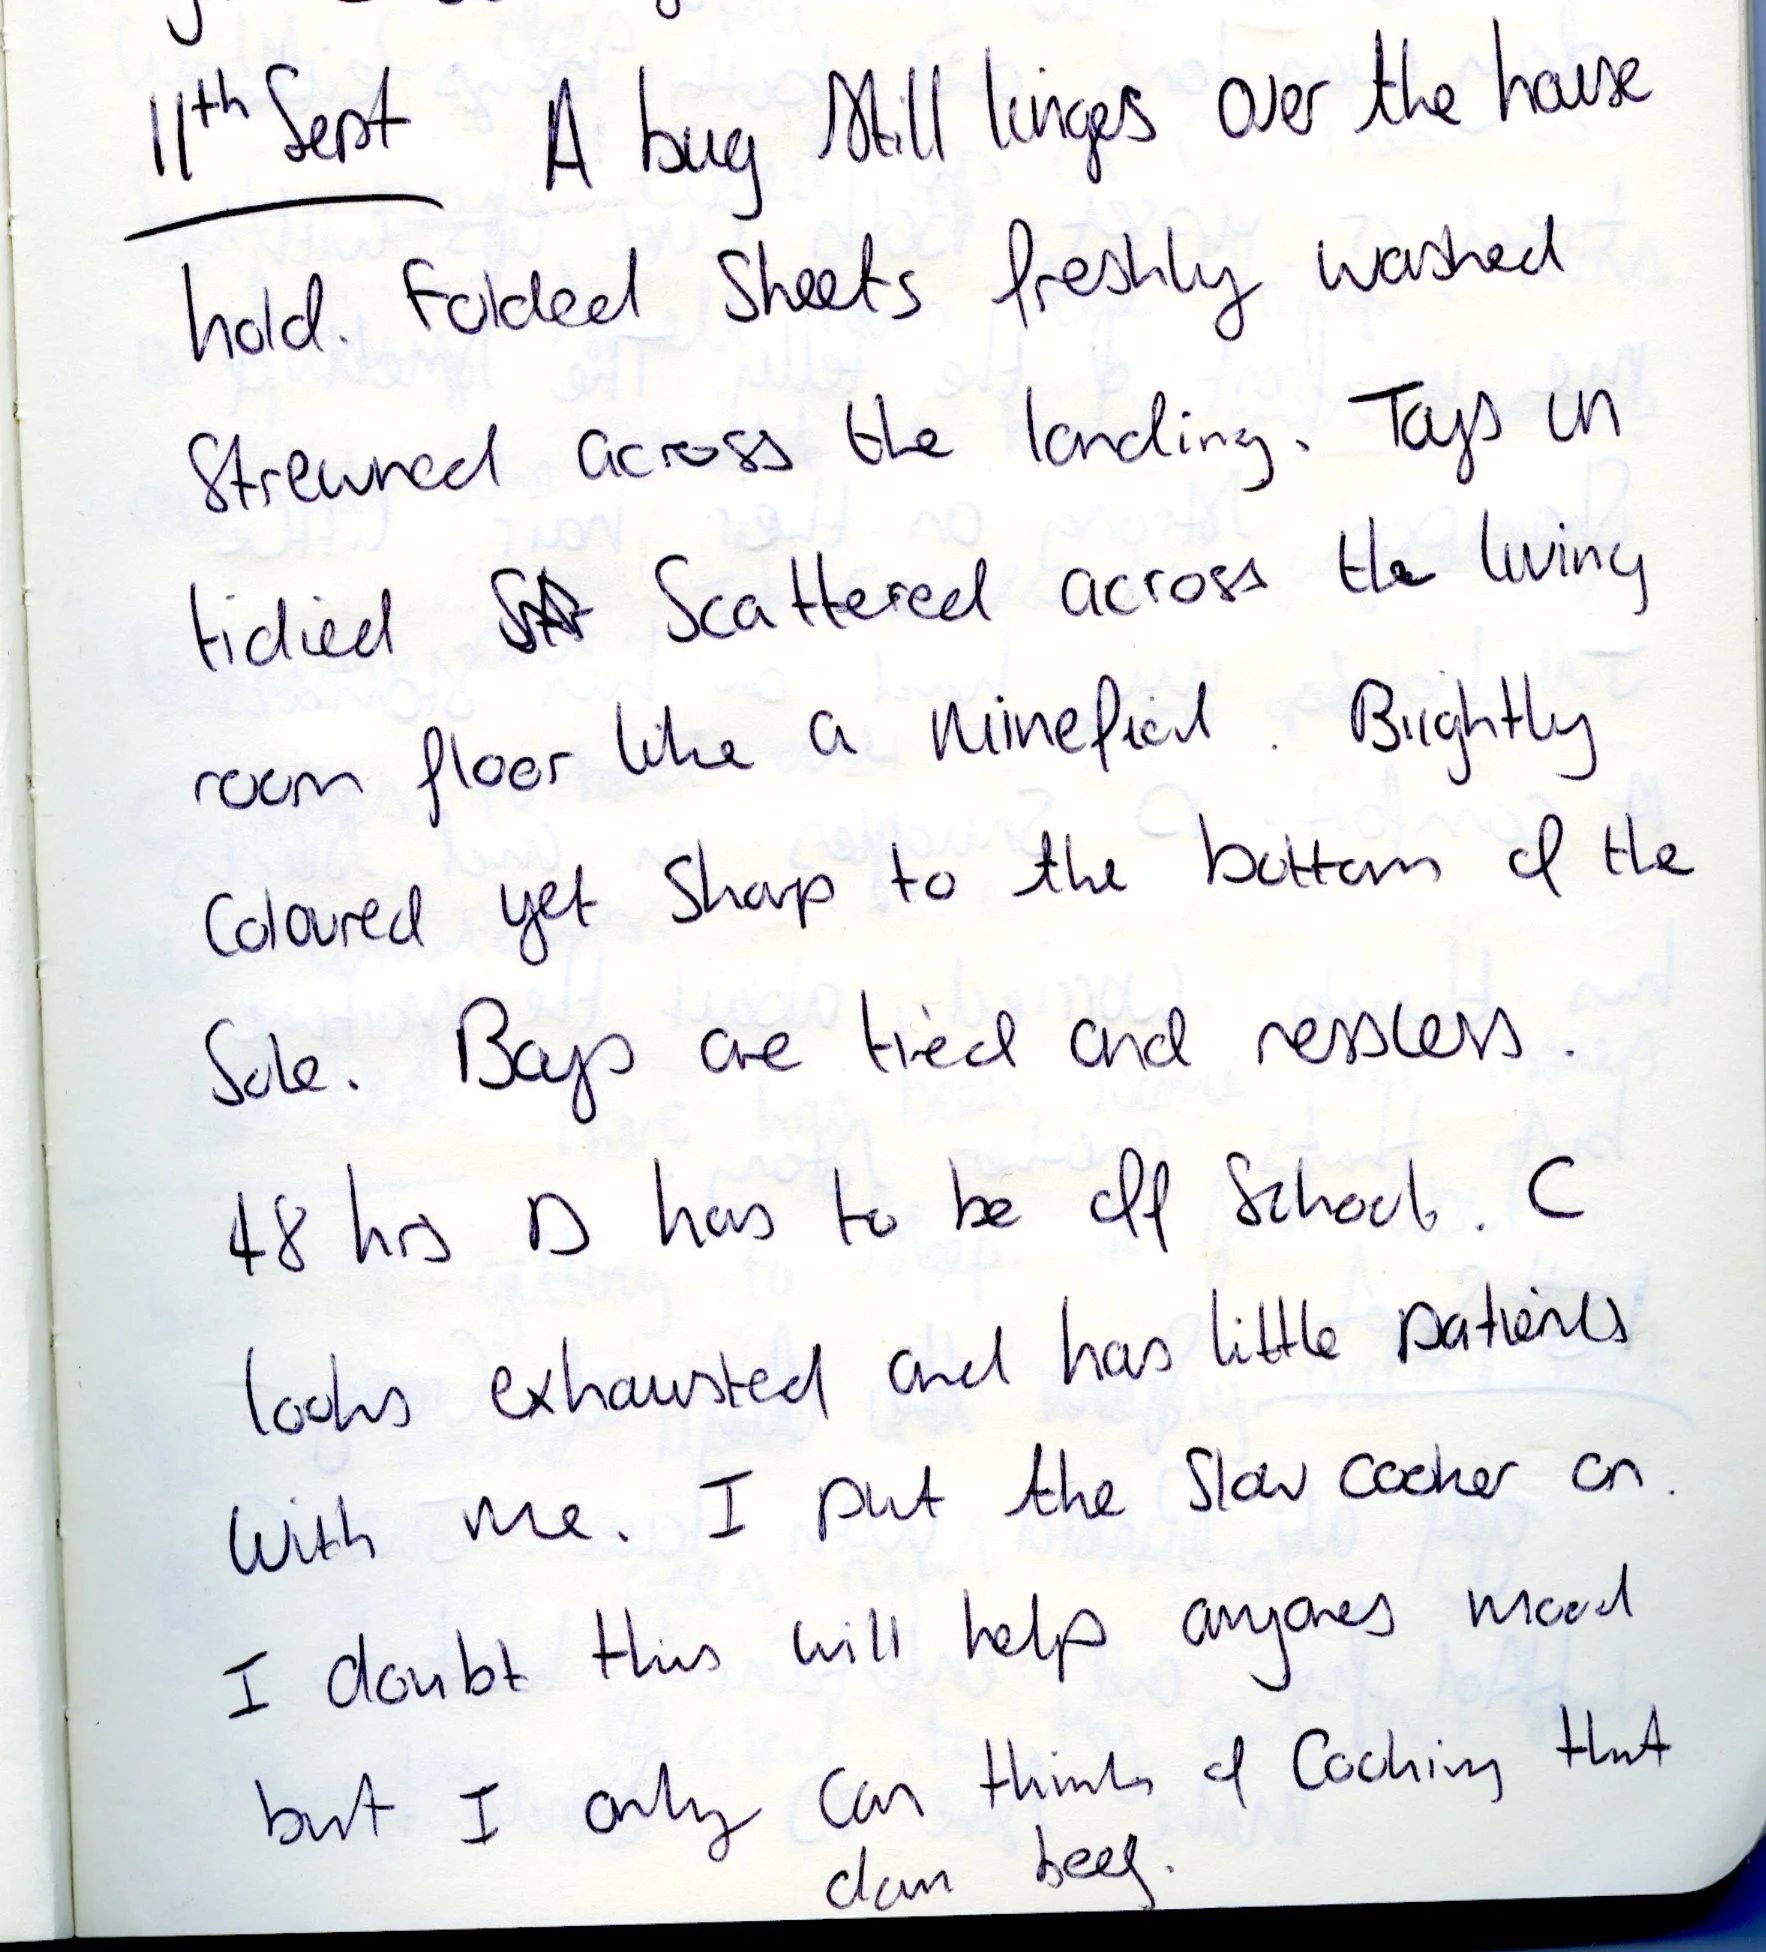 11th Sept A bug still linges over the house
hold. Folded Sheets freshly washed
Strewned across the landing. Toys un
tidied Scattered across the living
room floor like a minefield. Brightly
Coloured yet Sharp to the bottom of the
Sole. Boys are tired and ressless.
48 hrs D has to be off School. C
looks exhausted and has little patients
With me. I put the Slow cooker on.
I doubt this will help anyones mood
but I only can think of Cooking that
dam beef.